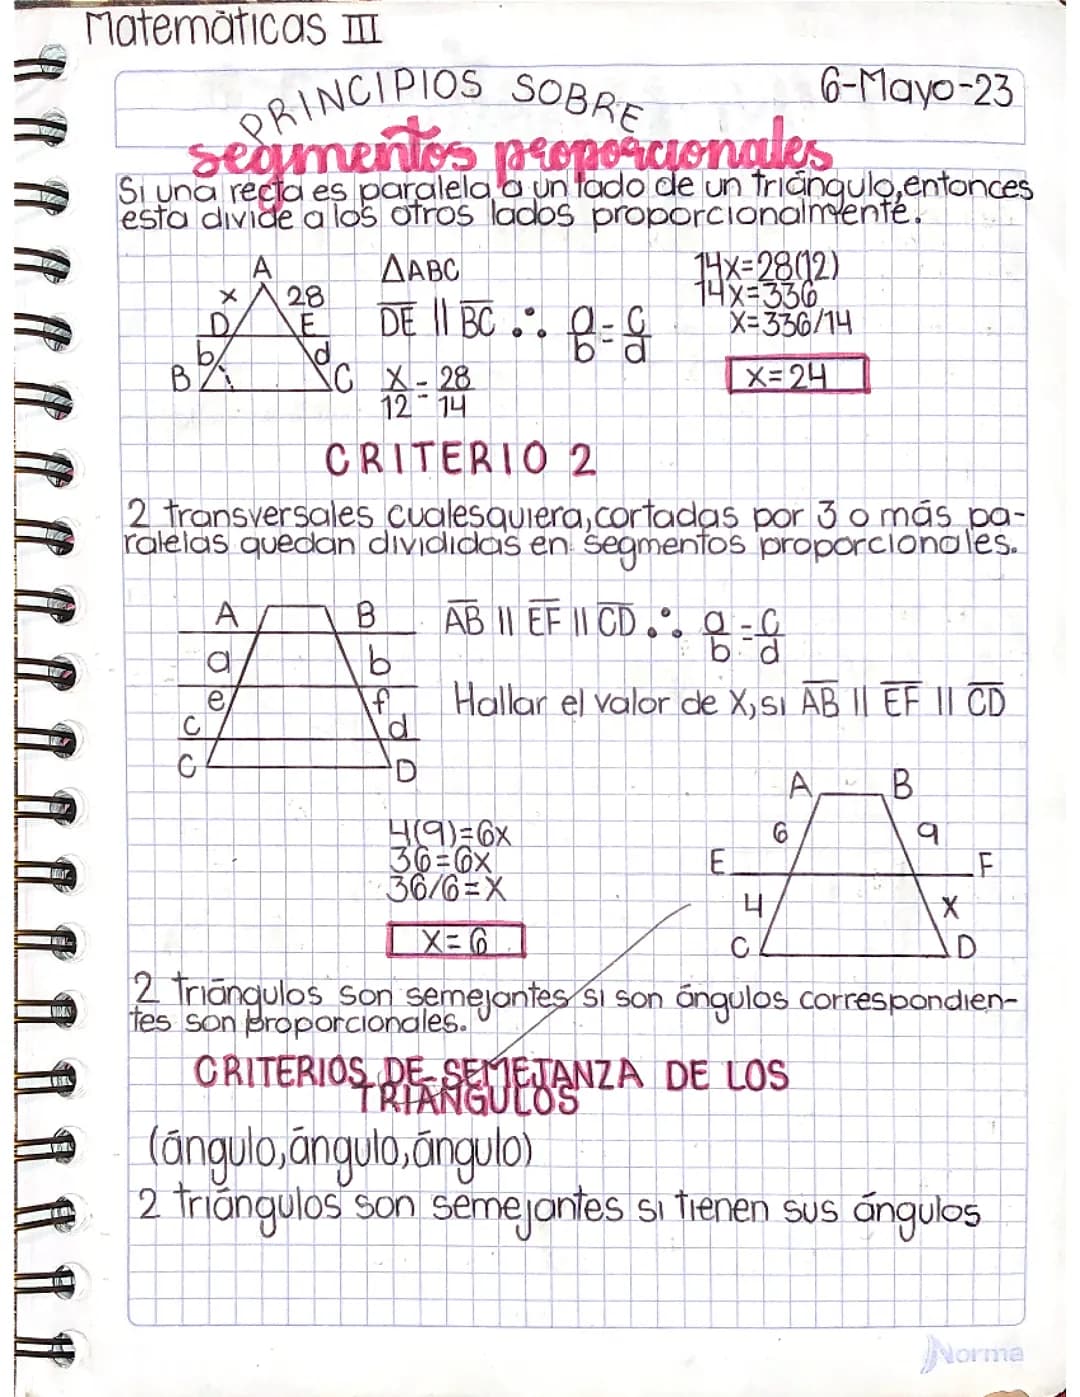 Matemáticas III
6-Mayo-23
PRINCIPIOS SOBRE
segmentos proporcionales
Si una recta es paralela a un lado de un triángulo, entonces
esta divide a los otros lados proporcionalmente.
A
x 28
D E
b d
B C
△ABC
DE || BC ∴ a/b = c/d
x/12 = 28/14
14x=28(12)
14x=336
x=336/14
x=24
CRITERIO 2
2 transversales cualesquiera, cortadas por 3 o más pa-
ralelas quedan divididas en segmentos proporcionales.
A B
a b
e f
c d
C D
AB || EF || CD ∴ a/b = c/d
Hallar el valor de X, si AB || EF || CD
A B
6 9
E F
4 X
C D
4(9)=6x
36=6x
36/6=X
X=6
2 triángulos son semejantes si son ángulos correspondien-
tes son proporcionales.
CRITERIOS DE SEMEJANZA DE LOS
TRIÁNGULOS
(ángulo, ángulo, ángulo)
2 triángulos son semejantes si tienen sus ángulos
Norma